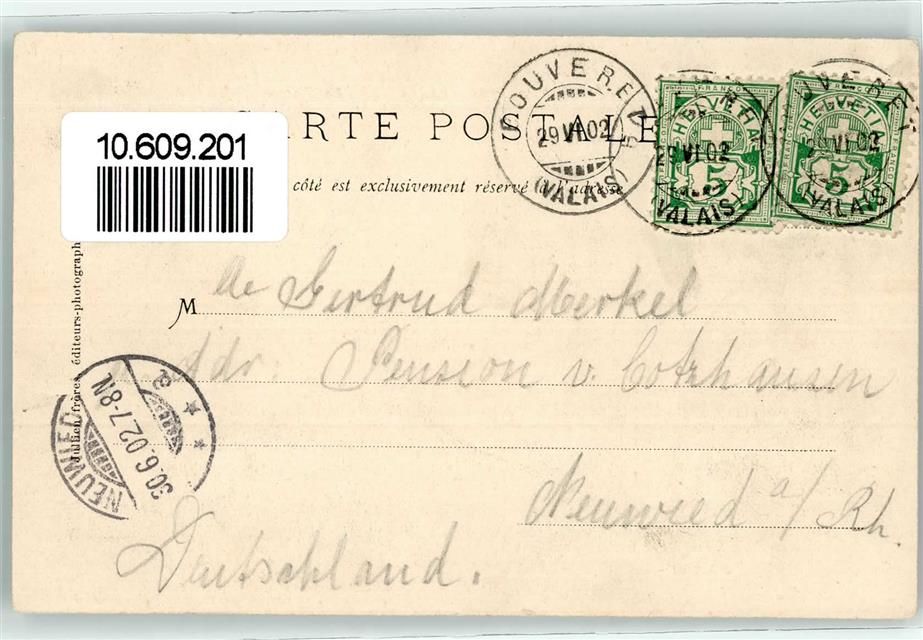 10.609.201
CARTE POSTALE
côté est exclusivement réservé à l'adresse
BOUVERET
29 VI 02
(VALAIS)
FRANCO
HELVETIA
5
BOUVERET
29 VI 02
(VALAIS)
FRANCO
HELVETIA
5
Julien frères, éditeurs-photograph
M
Gertrud Merkel
Adr. Pension v. Cotzhausen
Neuwied a/Rh.
Deutschland.
NEUWIED
30.6.02.7-8N.
* * a